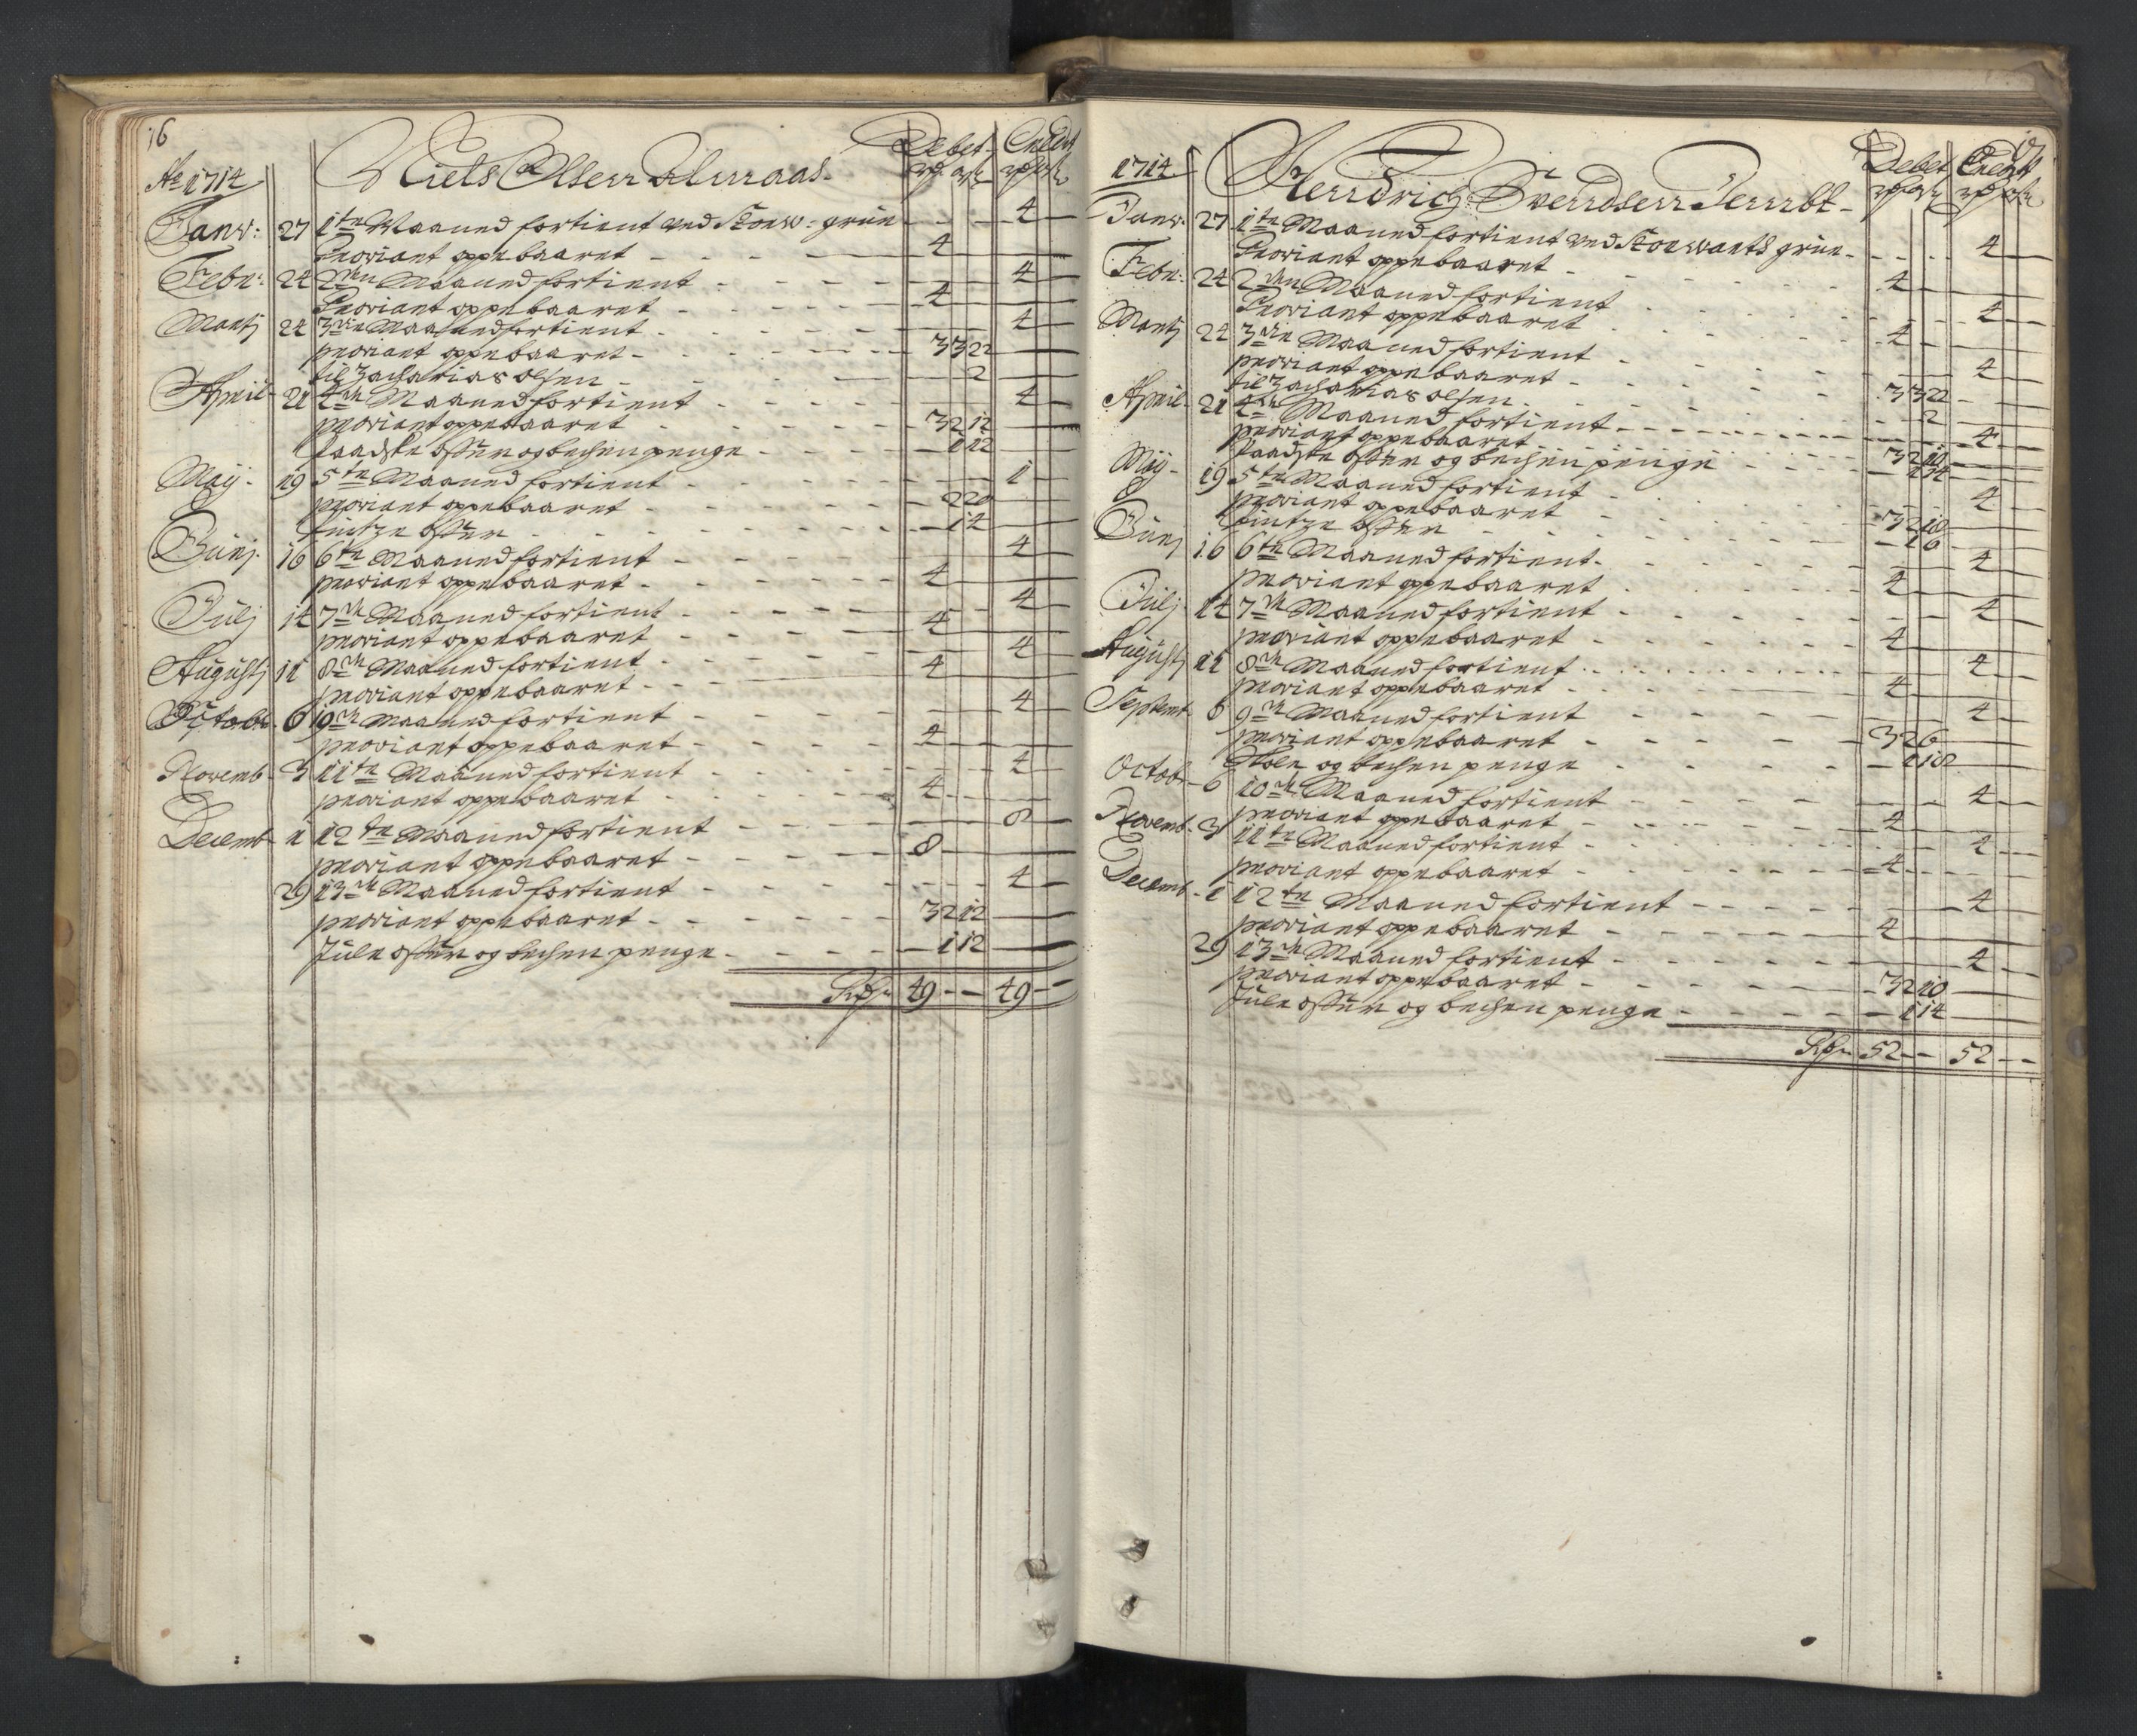 16
Ao 1714 Niels Olsen Aluraas. Debet Credit
Janv: 27 1te Maaned fortient ved Storw: grüe - - - 4 -
Proviant oppebaaret - - - 4
Febr: 24 2den Maaned fortient - - - 4 -
Proviant oppebaaret - - - 4
Martj 24 3die Maaned fortient - - - 4 -
proviant oppebaaret - - - 3 3 22
til Zacharias olsen - - - 2
April 21 4de Maaned fortient - - - 4 -
proviant oppebaaret - - - 3 2 12
Paaske offer og bechen penge - - - 1 12
Maij - 19 5te Maaned fortient - - - 1 -
proviant oppebaaret - - - 2 20
Pintze offer - - - 14
Junj. 16 6te Maaned fortient - - - 4 -
proviant oppebaaret - - - 4
Julj 14 7de Maaned fortient - - - 4 -
proviant oppebaaret - - - 4
Augustj 11 8de Maaned fortient - - - 4 -
proviant oppebaaret - - - 4
Octob. 6 10de Maaned fortient - - - 4 -
proviant oppebaaret - - - 4
Novemb. 3 11te Maaned fortient - - - 4 -
proviant oppebaaret - - - 4
Decemb 1 12te Maaned fortient - - - 8 -
proviant oppebaaret - - - 8
29 13de Maaned fortient - - - 4 -
proviant oppebaaret - - - 3 2 12
Jule offer og bechen penge - - - 1 12
49 - - 49 - -
17
1714 Hendrich Svendsen Debet Credit
Janv. 27 1te Maaned fortient ved Storwarts grüe - - - 4
Proviant oppebaaret - - - 4
Febr: 24 2den Maaned fortient - - - 4
Proviant oppebaaret - - - 4
Martj 24 3die Maaned fortient - - - 4
proviant oppebaaret - - - 3 3 22
til Zacharias olsen - - - 2
April 21 4de Maaned fortient - - - 4
proviant oppebaaret - - - 3 2 10
Paaske offer og bechen penge - - - 1 14
Maij - 19 5te Maaned fortient - - - 4
proviant oppebaaret - - - 3 2 18
Pintze offer - - - 1 6
Junj 16 6te Maaned fortient - - - 4
proviant oppebaaret - - - 4
Julj 14 7de Maaned fortient - - - 4
proviant oppebaaret - - - 4
Augustj 11 8de Maaned fortient - - - 4
proviant oppebaaret - - - 4
Septemb 8 9de Maaned fortient - - - 4
proviant oppebaaret - - - 3 2 6
og bechen penge - - - 1 18
Octob - 6 10de Maaned fortient - - - 4
proviant oppebaaret - - - 4
Novemb. 3 11te Maaned fortient - - - 4
proviant oppebaaret - - - 4
Decemb - 1 12te Maaned fortient - - - 4
proviant oppebaaret - - - 4
29 13de Maaned fortient - - - 4
proviant oppebaaret - - - 3 2 10
Jule offer og bechen penge - - - 1 14
52 - - 52 - -